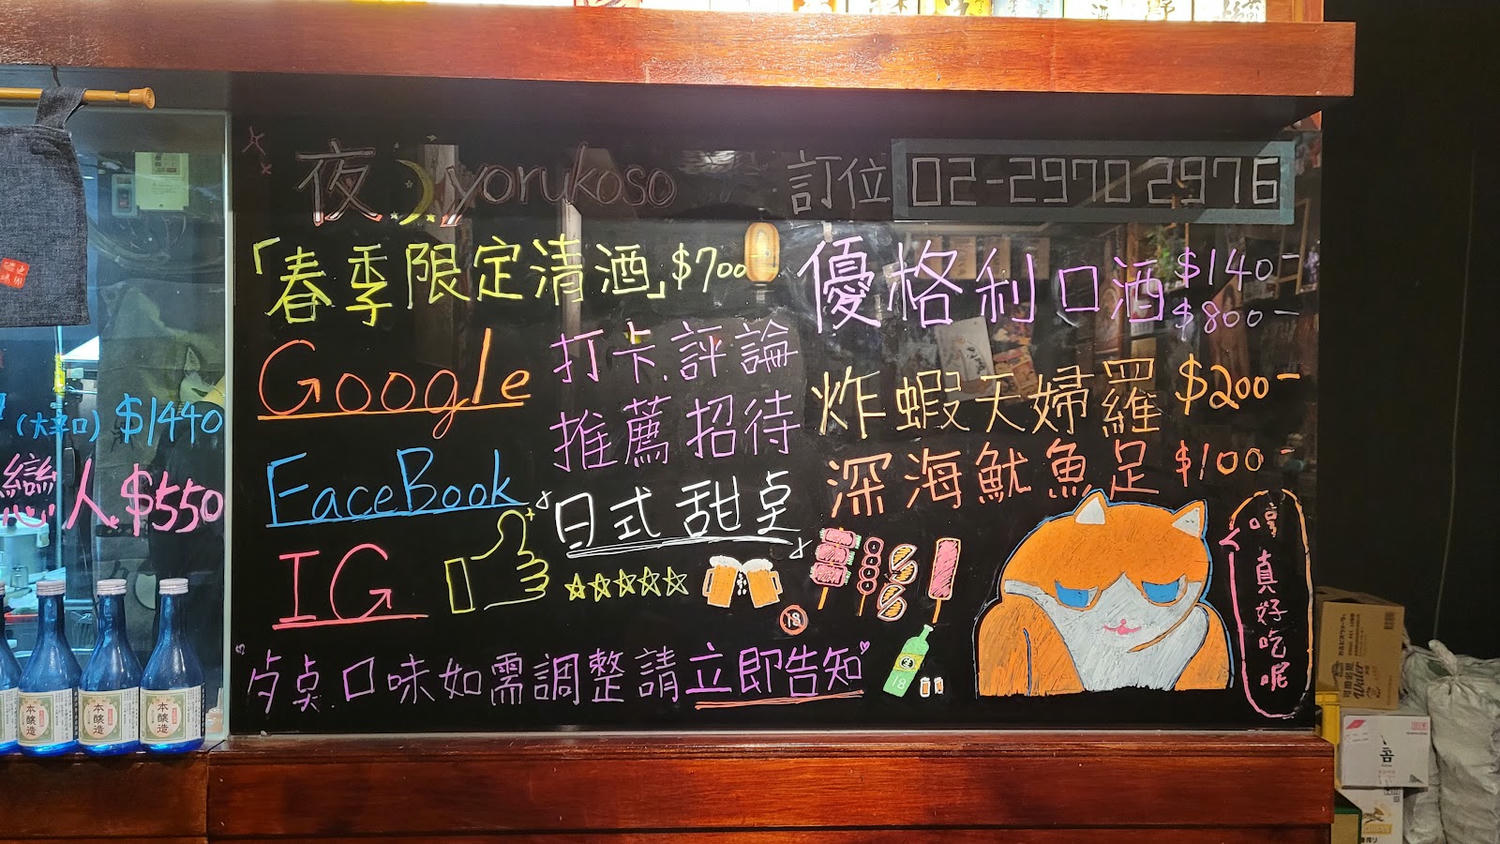 夜 yorukoso
訂位 02-2970 2976
「春季限定清酒」$700
優格利口酒 $140-
$800-
Google
打卡.評論
推薦招待
炸蝦天婦羅 $200-
深海魷魚足 $100-
FaceBook
日式甜点
IG
18
18
点点.口味如需調整請立即告知
哼真好吃呢
(大辛口) $1440
戀人 $550
本醸造
本醸造
本醸造